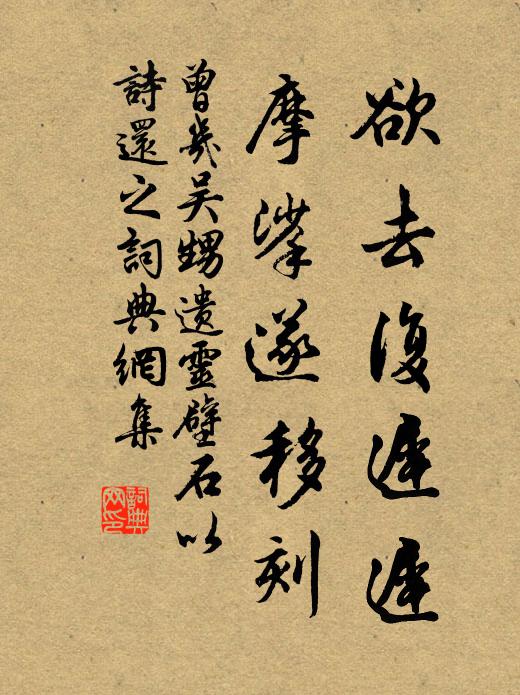 欲去復遲遲
摩挲遂移刻
曾幾吳甥遺靈壁石以
詩還之詞典網集
詞典
网印